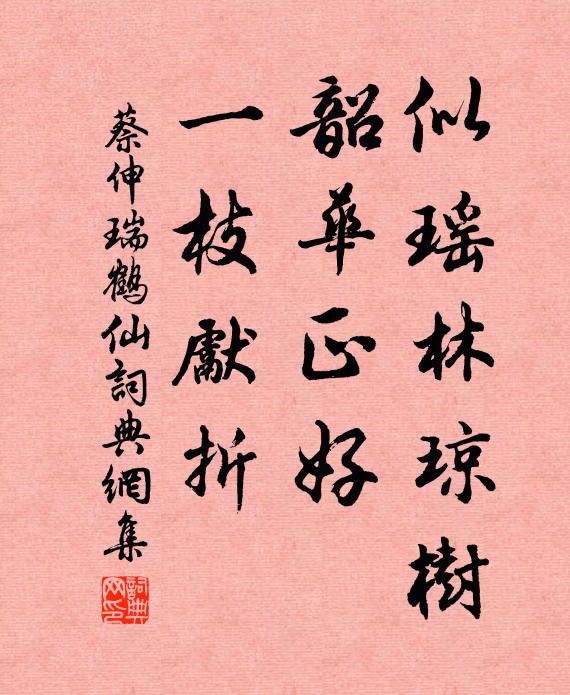 似瑶林琼樹
韶華正好
一枝獻折
蔡伸瑞鶴仙詞典網集
詞典
網印